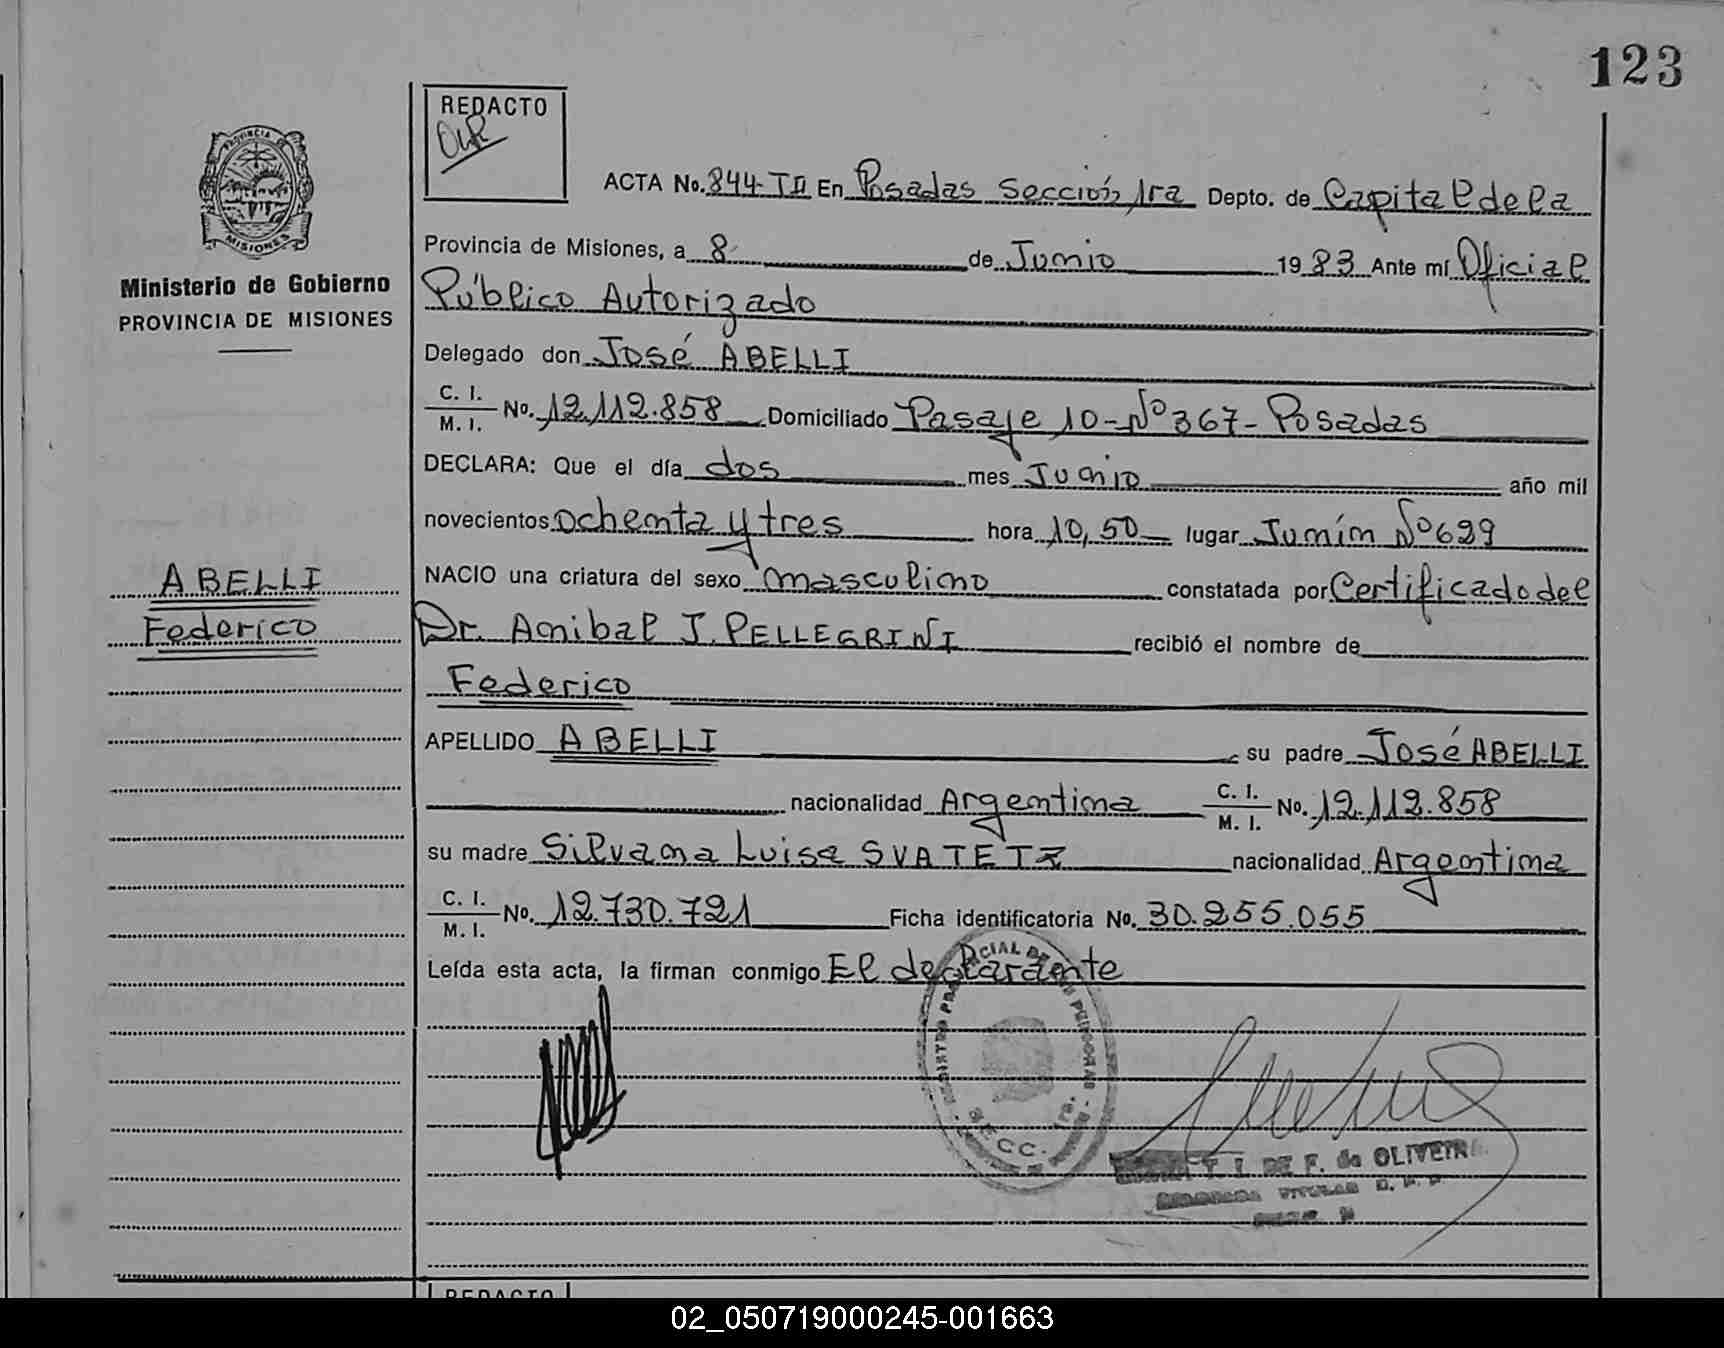 123
REDACTO
PROVINCIA DE
MISIONES
Ministerio de Gobierno
PROVINCIA DE MISIONES
ACTA No. 844-TII En Posadas Sección 1ra Depto. de Capital de la
Provincia de Misiones, a 8 de Junio 1983 Ante mí Oficial
Público Autorizado
Delegado don José ABELLI
C. I.
M. I. No. 12.112.858 Domiciliado Pasaje 10-Nº 367- Posadas
DECLARA: Que el día dos mes Junio año mil
novecientos ochenta y tres hora 10,50 lugar Junín Nº 699
NACIO una criatura del sexo masculino constatada por Certificado del
Dr. Anibal J. PELLEGRINI recibió el nombre de
Federico
APELLIDO ABELLI su padre José ABELLI
nacionalidad Argentina C. I.
M. I. No. 12.112.858
su madre Silvana Luisa SVATETZ nacionalidad Argentina
C. I.
M. I. No. 12.730.721 Ficha identificatoria No. 30.255.055
Leída esta acta, la firman conmigo El declarante
ABELLI
Federico
SECC. 1ra.
DE F. de OLIVEIRA
REDACTO
02_050719000245-001663